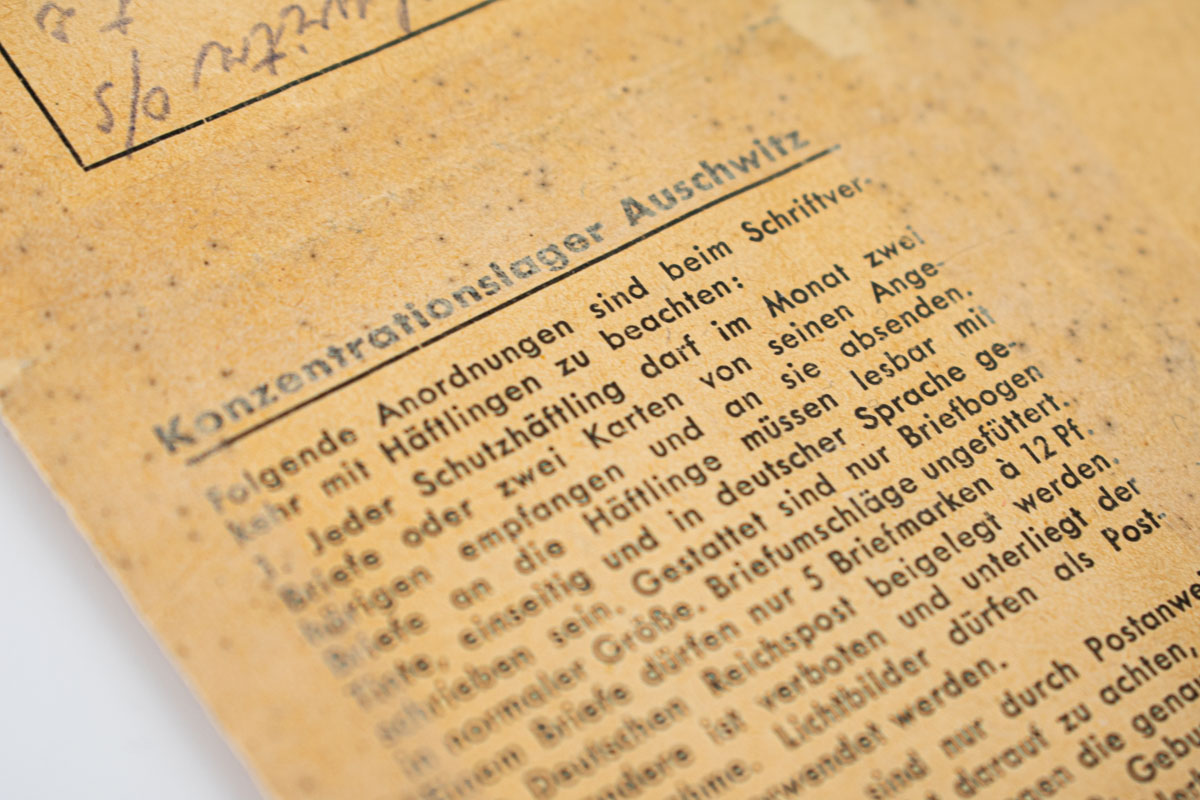 Konzentrationslager Auschwitz
Folgende Anordnungen sind beim Schriftver-
kehr mit Häftlingen zu beachten:
1. Jeder Schutzhäftling darf im Monat zwei
Briefe oder zwei Karten von seinen Ange-
hörigen empfangen und an sie absenden.
Briefe an die Häftlinge müssen lesbar mit
Tinte, einseitig und in deutscher Sprache ge-
schrieben sein. Gestattet sind nur Briefbogen
in normaler Größe. Briefumschläge ungefüttert.
Einem Briefe dürfen nur 5 Briefmarken à 12 Pf.
Deutschen Reichspost beigelegt werden.
ndere ist verboten und unterliegt der
hme. Lichtbilder dürfen als Post-
wendet werden.
sind nur durch Postanwei
darauf zu achten,
en die genau
Gebu